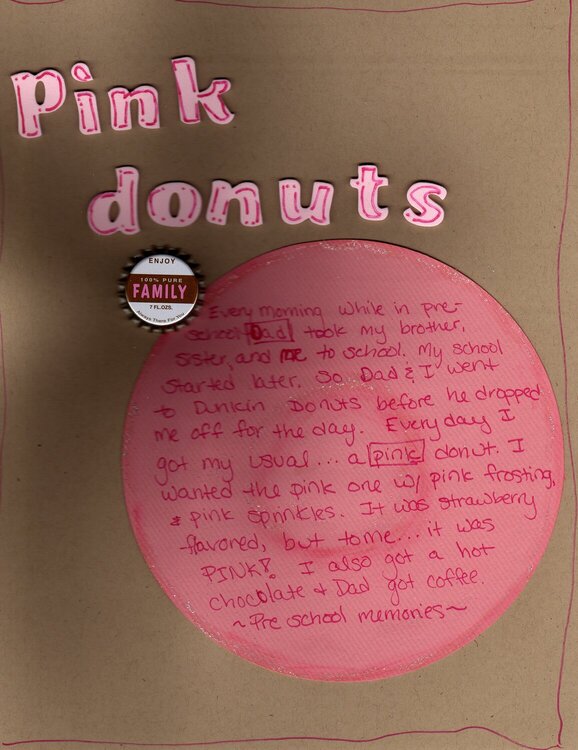 Pink
donuts
ENJOY
100% PURE
FAMILY
7 FL.OZS.
Always There For You
Every morning while in pre-
school Dad took my brother,
sister, and me to school. My school
started later. So Dad & I went
to Dunkin Donuts before he dropped
me off for the day. Everyday I
got my usual... a pink donut. I
wanted the pink one w/ pink frosting,
& pink sprinkles. It was strawberry
-flavored, but to me... it was
PINK! I also got a hot
chocolate & Dad got coffee.
~Pre school memories~